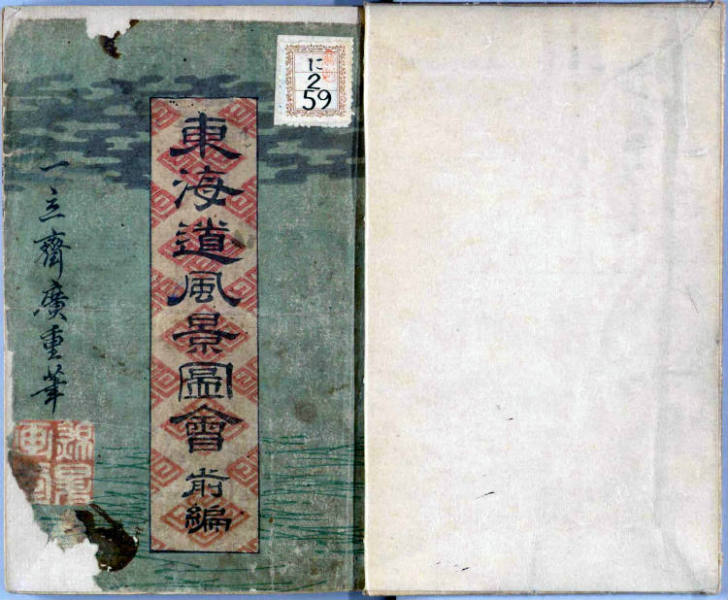 に
2
59
東海道風景圖會 前編
一立齋廣重筆